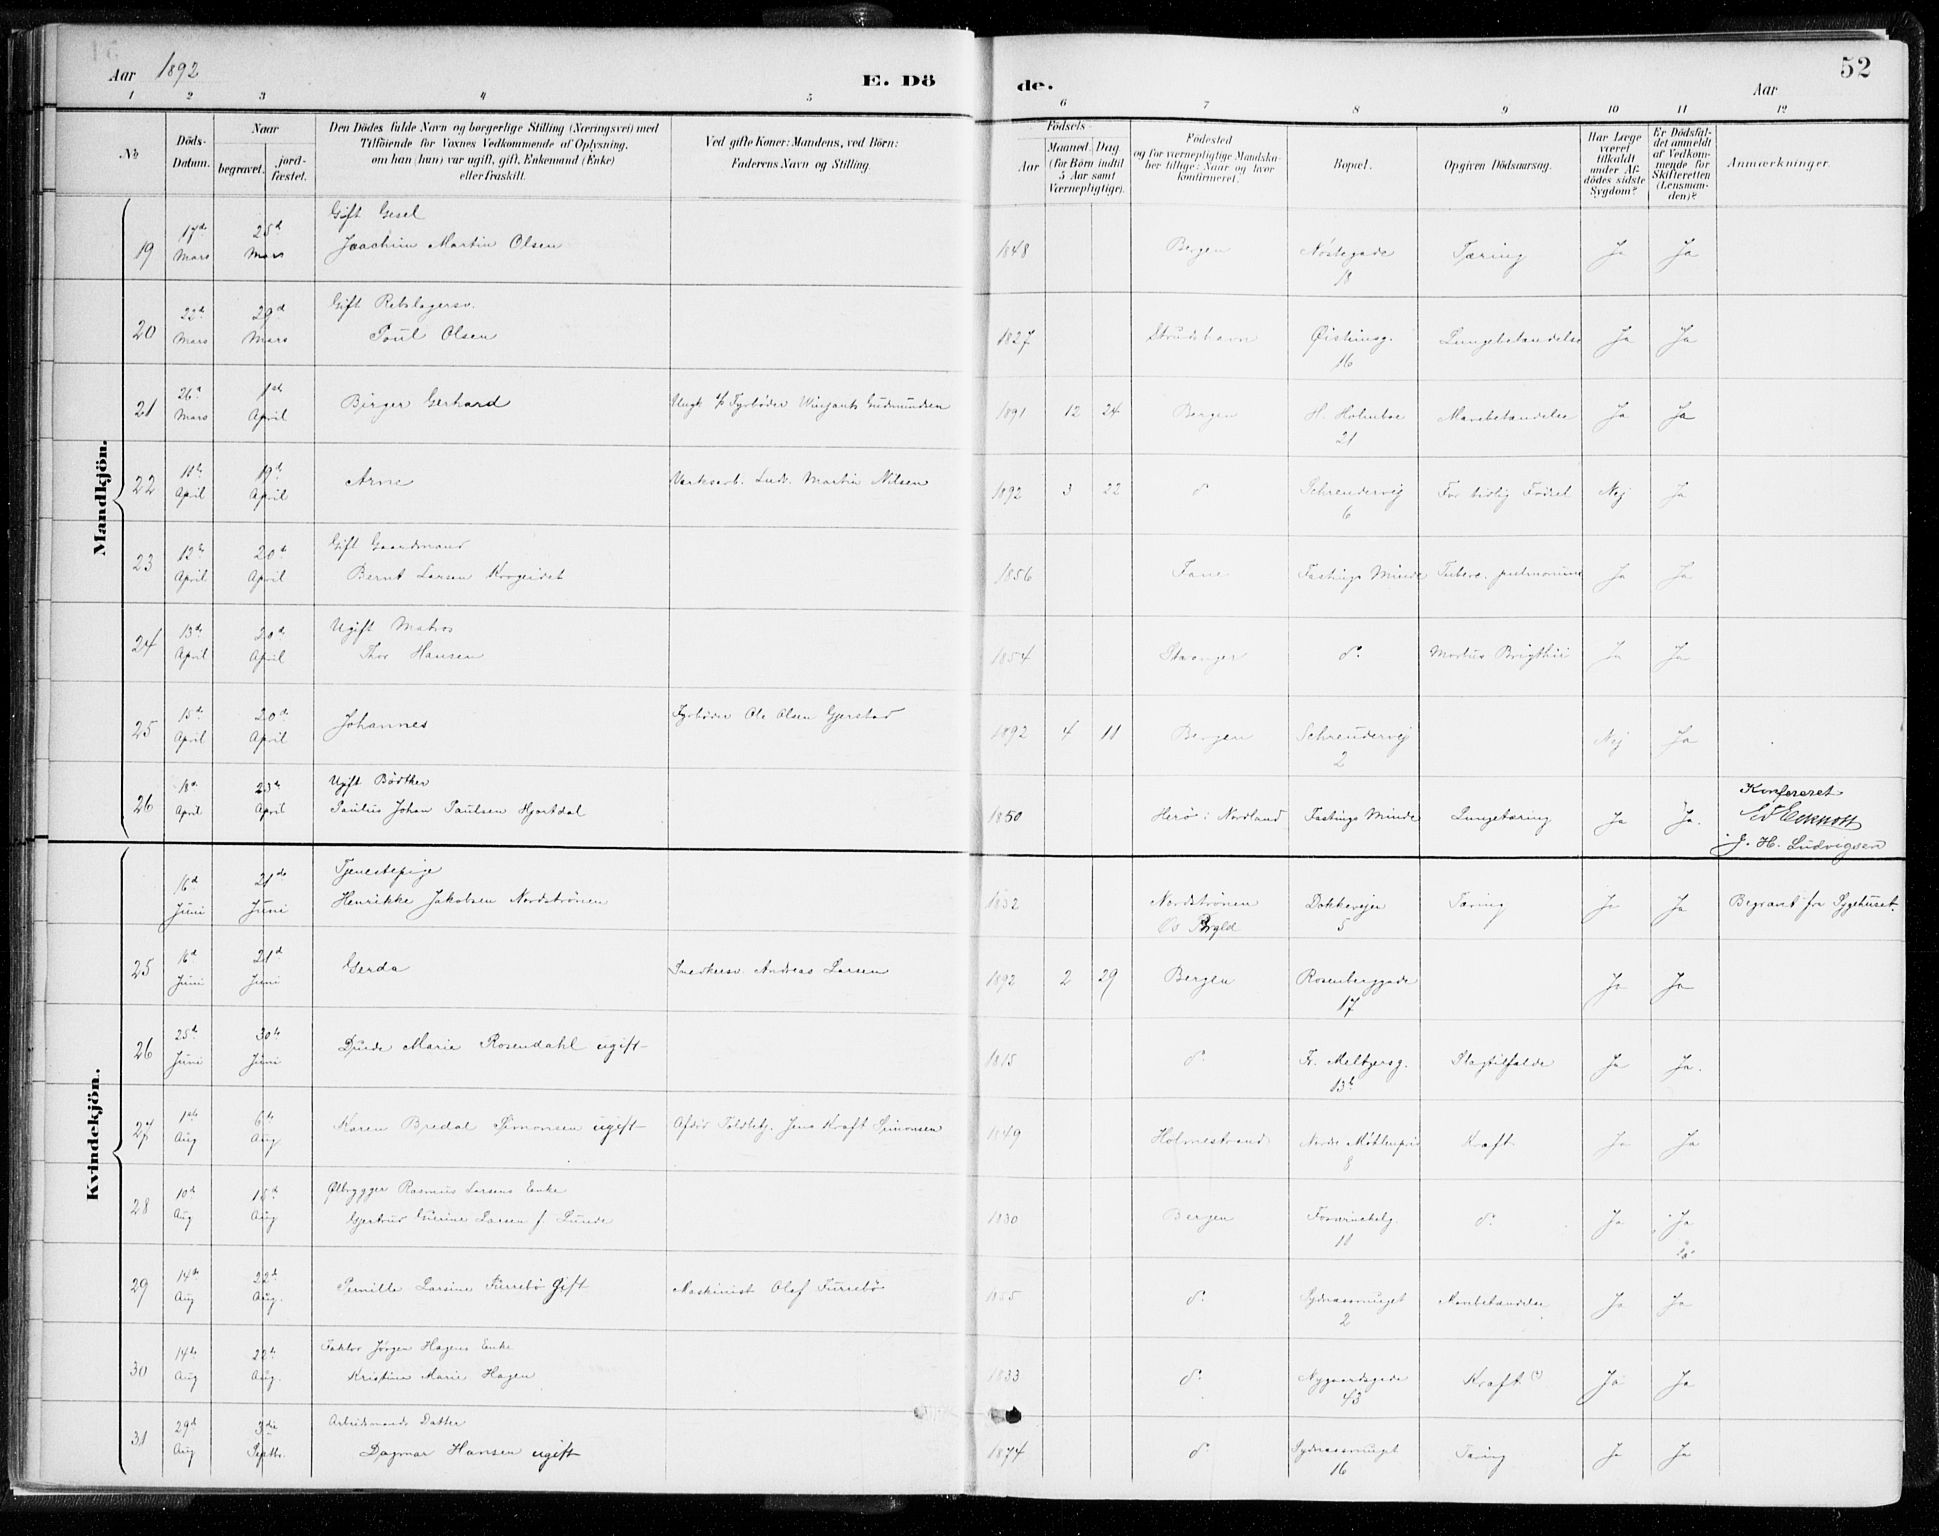 Aar 1892
E. Dö
de.
Aar
52
1 2 3 4 5 6 7 8 9 10 11 12
No
Döds-Datum.
Naar
begravet.
jord-fæstet.
Den Dödes fulde Navn og borgerlige Stilling (Næringsvei) med
Tilföiende for Voxnes Vedkommende af Oplysning,
om han (hun) var ugift, gift, Enkemand (Enke)
eller fraskilt.
Ved gifte Koner: Mandens, ved Börn:
Faderens Navn og Stilling.
Födsels-
Aar
Maaned. Dag
(for Börn indtil
5 Aar samt
Værnepligtige).
Födested
og for værnepligtige Mandska-
ber tillige: Naar og hvor
konfirmeret.
Bopæl.
Opgiven Dödsaarsag.
Har Læge
været
tilkaldt
under Af-
dödes sidste
Sygdom?
Er Dödsfal-
det anmeldt
af Vedkom-
mende for
Skifteretten
(Lensman-
den)?
Anmærkninger.
Mandkjön.
19 17de Mars 25de Mars Gift Gesel
Joachim Martin Olsen 1848 Bergen Nøstegade 18 Tæring Ja Ja
20 22de Mars 29de Mars Gift Rebslagersv.
Poul Olsen 1827 Strudshavn Øisteinsg. 16 Lungebetændelse Ja Ja
21 26de Mars 1ste April Birger Gerhard Fyrbøder Gudmundsen 1891 12 24 Bergen H. Holmboe 21 Mavebetændelse Ja Ja
22 11te April 19de April Arne Værksarb. Ludv. Martin Nilsen 1892 3 22 do Schreudervej 6 For tidlig Fødsel Nej Ja
23 12te April 20de April Gift Gaardmand
Bernt Larsen Krogeidet 1856 Fane Fastings Minde Tuberc. pulmonum Ja Ja
24 13de April 20de April Ugift Matros
Thor Hansen 1854 Stavanger do Morbus Brigthii Ja Ja
25 15de April 20de April Johannes Fyrbøder Ole Olsen Gjerstad 1892 4 11 Bergen Schreudervej 2 Nej Ja
26 18de April 23de April Ugift Bødtker
Paulus Johan Paulsen Hjortdal 1850 Herø i Nordland Fastings Minde Lungetæring Ja Ja.
Konfereret
J. H. Ludvigsen
Kvindekjön.
16de Juni 21de Juni Tjenestepige
Henrikke Jakobsen Nordstrønen 1832 Nordstrønen Os Dokkevejen 5 Tæring Ja Ja Begravet fra Sygehuset.
25 16de Juni 21de Juni Gerda Snedkersv. Andreas Larsen 1892 2 29 Bergen Rosenberggade 17 Ja Ja
26 25de Juni 30te Juni Marie Rosendahl ugift 1815 do Fr. Meltzersg. 13b Slagtilfælde Ja Ja.
27 1ste Aug 6te Aug Karen Bredal Simonsen ugift Afdød Toldbetj. Jens Kraft Simonsen 1849 Holmestrand Nordre 8 Kræft Ja Ja
28 10de Aug 15de Aug Ølbrygger Rasmus Larsens Enke
Gjertrud Larsen f. Lunde 1830 Bergen Fosswinckelg. 10 do Ja Ja
29 14de Aug 22de Aug. Pernille Larsine Furrebø Gift Maskinist Olaf Furrebø 1855 do Sydnæssmuget 2 Mavebetændelse Ja Ja
30 14de Aug 22de Aug. Faktor Jørgen Hagens Enke
Kristine Marie Hagen 1833 do Nygaardsgade 43 Kræft Ja Ja
31 29de Aug 3die Septbr. Arbeidsmands Datter
Dagmar Hansen ugift 1874 do Sydnæssmuget 16 Tæring Ja Ja